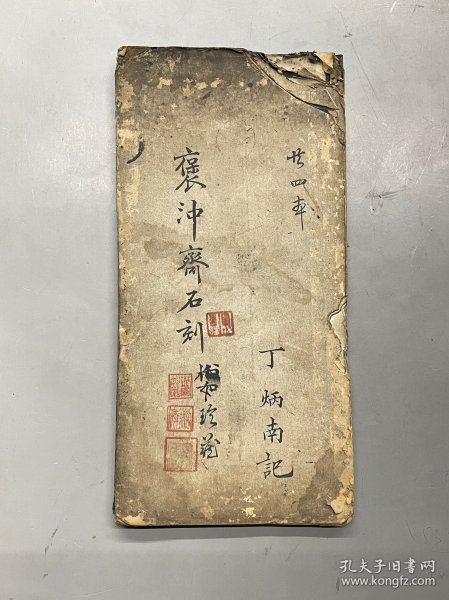 廿四年
丁炳南記
褒沖齋石刻
珍藏
孔夫子旧书网
www.kongfz.com